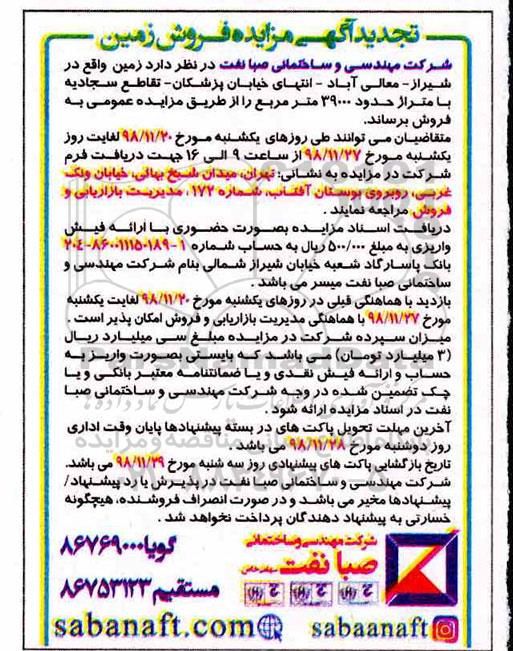 تجدید آگهی مزایده فروش زمین
شرکت مهندسی و ساختمانی صبا نفت در نظر دارد زمین واقع در
شیراز- معالی آباد - انتهای خیابان پزشکان- تقاطع سجادیه
با متراژ حدود ۳۹۰۰۰ متر مربع را از طریق مزایده عمومی به
فروش برساند.
متقاضیان می توانند طی روزهای یکشنبه مورخ ۹۸/۱۱/۲۰ لغایت روز
یکشنبه مورخ ۹۸/۱۱/۲۷ از ساعت ۹ الی ۱۶ جهت دریافت فرم
شرکت در مزایده به نشانی: تهران، میدان شیخ بهائی، خیابان ونک
غربی، روبروی بوستان آفتاب، شماره ۱۷۲، مدیریت بازاریابی و
فروش مراجعه نمایند .
دریافت اسناد مزایده بصورت حضوری با ارائه فیش
واریزی به مبلغ ۵۰۰/۰۰۰ ریال به حساب شماره ۱-۸۶۰۰۱۱۱۵۰۱۸۹-۲۰۴
بانک پاسارگاد شعبه خیابان شیراز شمالی بنام شرکت مهندسی و
ساختمانی صبا نفت میسر می باشد .
بازدید با هماهنگی قبلی در روزهای یکشنبه مورخ ۹۸/۱۱/۲۰ لغایت یکشنبه
مورخ ۹۸/۱۱/۲۷ با هماهنگی مدیریت بازاریابی و فروش امکان پذیر است .
میزان سپرده شرکت در مزایده مبلغ سی میلیارد ریال
(۳ میلیارد تومان) می باشد که بایستی بصورت واریز به
حساب و ارائه فیش نقدی و یا ضمانتنامه معتبر بانکی و یا
چک تضمین شده در وجه شرکت مهندسی و ساختمانی صبا
نفت در اسناد مزایده ارائه شود .
آخرین مهلت تحویل پاکت های در بسته پیشنهادها پایان وقت اداری
روز دوشنبه مورخ ۹۸/۱۱/۲۸ می باشد .
تاریخ بازگشایی پاکت های پیشنهادی روز سه شنبه مورخ ۹۸/۱۱/۲۹ می باشد.
شرکت مهندسی و ساختمانی صبا نفت در پذیرش یا رد پیشنهاد/
پیشنهادها مخیر می باشد و در صورت انصراف فروشنده، هیچگونه
خسارتی به پیشنهاد دهندگان پرداخت نخواهد شد .
شرکت مهندسی و ساختمانی
صبا نفت سهامی خاص
گویا ۸۶۷۶۹۰۰۰
مستقیم ۸۶۷۵۳۱۲۳
sabaanaft
sabanaft.com